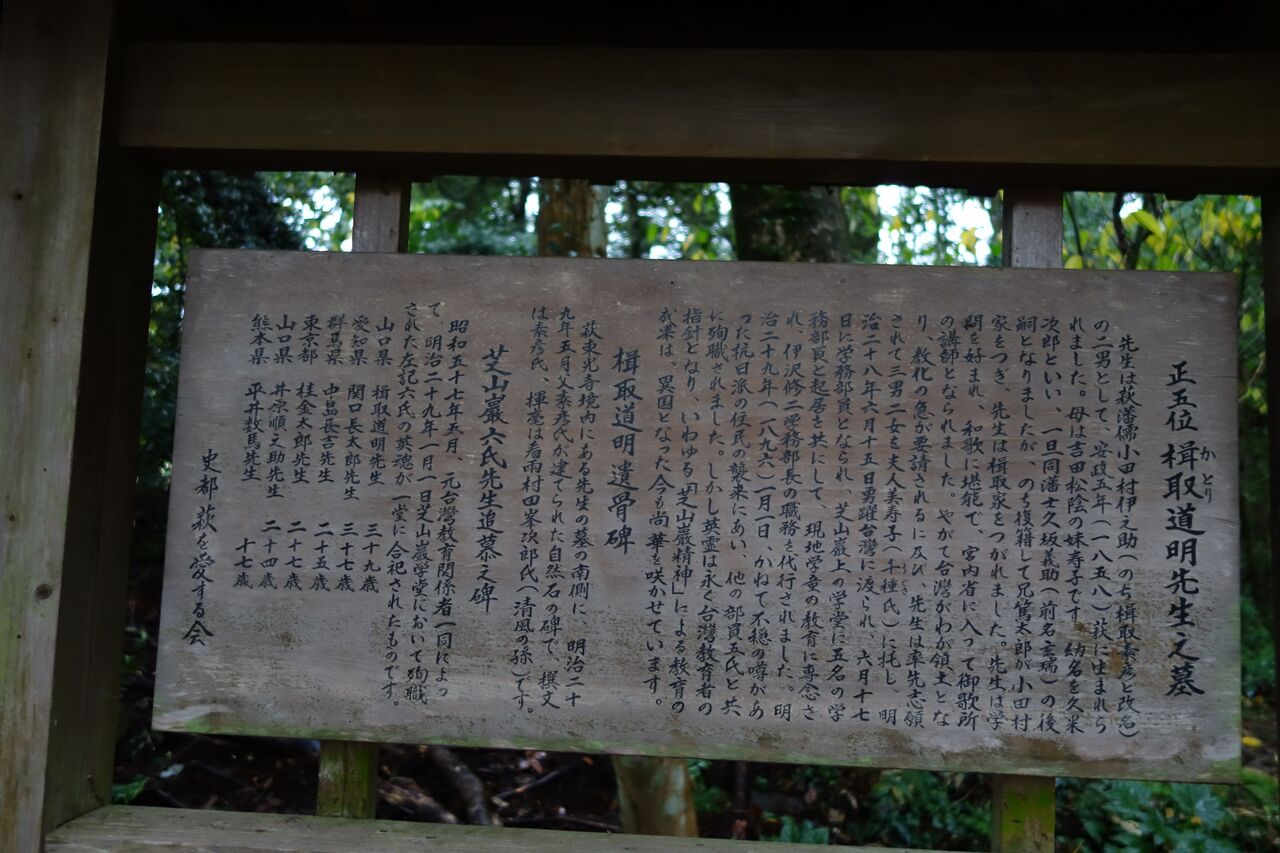 正五位 楫取道明先生之墓
かとり
先生は萩藩儒小田村伊之助（のち楫取素彦と改名）
の二男として、安政五年（一八五八）萩に生まれら
れました。母は吉田松陰の妹寿子です。幼名を久米
次郎といい、一旦同藩士久坂義助（前名玄瑞）の後
嗣となりましたが、のち復籍して兄篤太郎が小田村
家をつぎ、先生は楫取家をつがれました。先生は学
問を好まれ、和歌に堪能で、宮内省に入って御歌所
の講師となられました。やがて台灣がわが領土とな
り、教化の急が要請されるに及び、先生は率先志願
されて三男二女を夫人美寿子（千種氏）に托し、明
治二十八年六月十五日勇躍台灣に渡られ、六月十七
日に学務部員となられ、芝山巖上の学堂に五名の学
務部員と起居を共にして、現地学童の教育に専念さ
れ、伊沢修二学務部長の職務を代行されました。明
治二十九年（一八九六）一月一日、かねて不穏の噂があ
った抗日派の住民の襲来にあい、他の部員五氏と共
に殉職されました。しかし英霊は永く台灣教育者の
指針となり、いわゆる「芝山巖精神」による教育の
成果は、異国となった今も尚、華を咲かせています。
楫取道明遺骨碑
萩東光寺境内にある先生の墓の南側に、明治二十
九年五月父素彦氏が建てられた自然石の碑で、撰文
は素彦氏、揮毫は看雨村田峯次郎氏（清風の孫）です。
芝山巖六氏先生追慕之碑
昭和五十七年五月、元台灣教育関係者一同によっ
て、明治二十九年一月一日芝山巖学堂において殉職
された左記六氏の英魂が一堂に合祀されたものです。
山口県 楫取道明先生 三十九歳
愛知県 関口長太郎先生 三十七歳
群馬県 中島長吉先生 二十五歳
東京都 桂金太郎先生 二十七歳
山口県 井原順之助先生 二十四歳
熊本県 平井数馬先生 十七歳
史都萩を愛する会